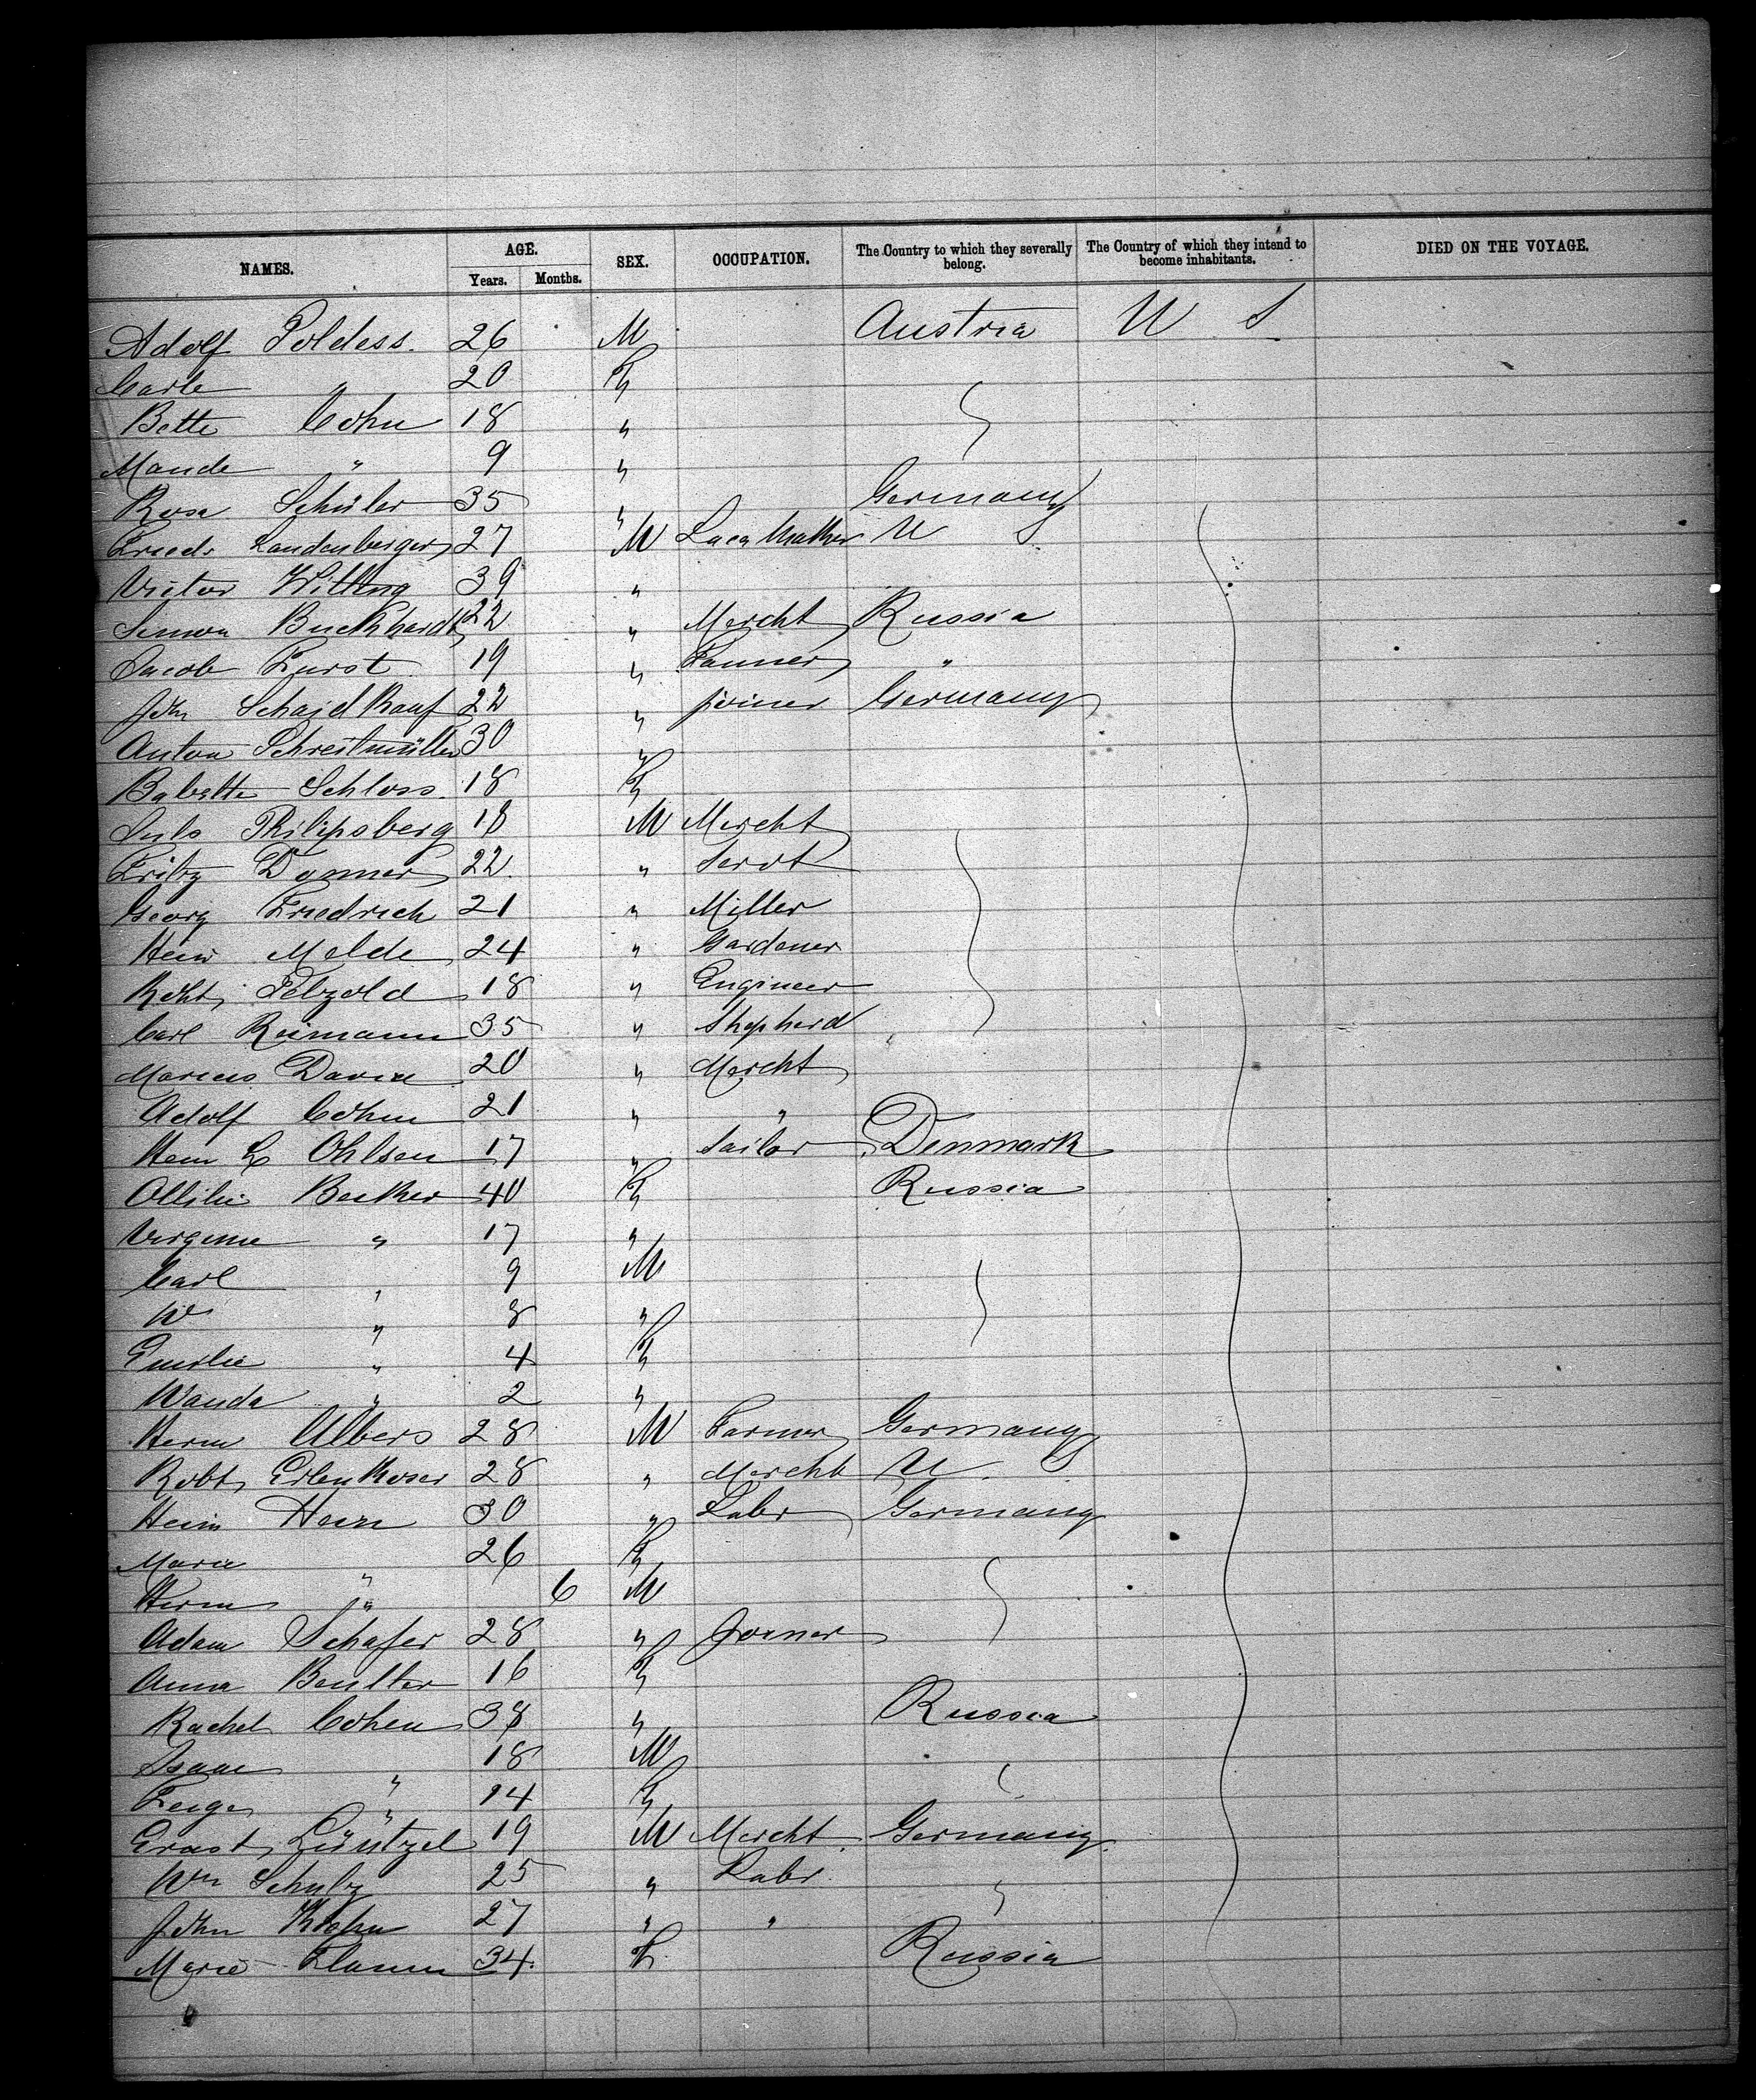 NAMES. AGE. Years. Months. SEX. OCCUPATION. The Country to which they severally belong. The Country of which they intend to become inhabitants. DIED ON THE VOYAGE.
Adolf Poldess. 26 M Austria U S
Carle " 20 F
Bette Cohn 18 "
Mande " 9 "
Rosa Schüler 35 " Germany
Friedr Landenberger 27 M U S
Victor Witting 39 "
Simon Buckhardt 22 " Mercht Russia
Jacob Furst 19 " Tanner "
John Schaidkauf 22 " joiner Germany
Anton Schreitmüller 30 "
Babette Schloss. 18 F
Philipsberg 18 M Mercht
Fritz Donner 22. " Servt
Georg Friedrich 21 " Miller
Heinr Melde 24 " Gardener
Robt Petzold 18 " Engineer
Carl Reimann 35 " Shepherd
Marcus David 20 " Mercht
Adolf Cohn 21 " "
Ohlsen 17 " Sailor Denmark
Ottilie Becker 40 F Russia
Virginie " 17 "
Carl " 9 M
W " 8 "
Emilie " 4 F
Wanda " 2 "
Herm Albers 28 M Farmer Germany
Robt 28 " Mercht U S
Heinr 30 " Labr Germany
Marie " 26 F
Herm " 6 M
Adam Schafer 28 " Joiner
Anna Beutler 16 F
Rachel Cohen 38 " Russia
Isaac " 18 M
Feige " 14 F
Ernst Lüntzel 19 M Mercht Germany
Wm Schulz 25 " Labr
John 27 " "
Marie Flamm 34. F Russia